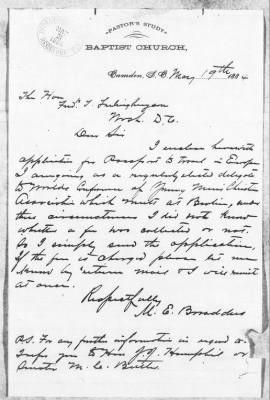 PASTOR'S STUDY
BAPTIST CHURCH,
Camden, S.C. May 19th 1884
The Hon
Fred. T. Frelinghuysen
Wash. D.C.
Dear Sir
I enclose herewith
application for Passport to travel in Europe
I am going, as a regularly elected delegate
to World's Conference of Young Men's Christian
Association which meets at Berlin, under
these circumstances I did not know
whether a fee was collected or not.
So I simply send the application,
If the fee is charged please let me
know by return mail & I will remit
at once.
Respectfully
M. E. Broaddus
P.S. For any further information in regard to
I refer you to Hon J. J. Hemphill or
Senator M. C. Butler